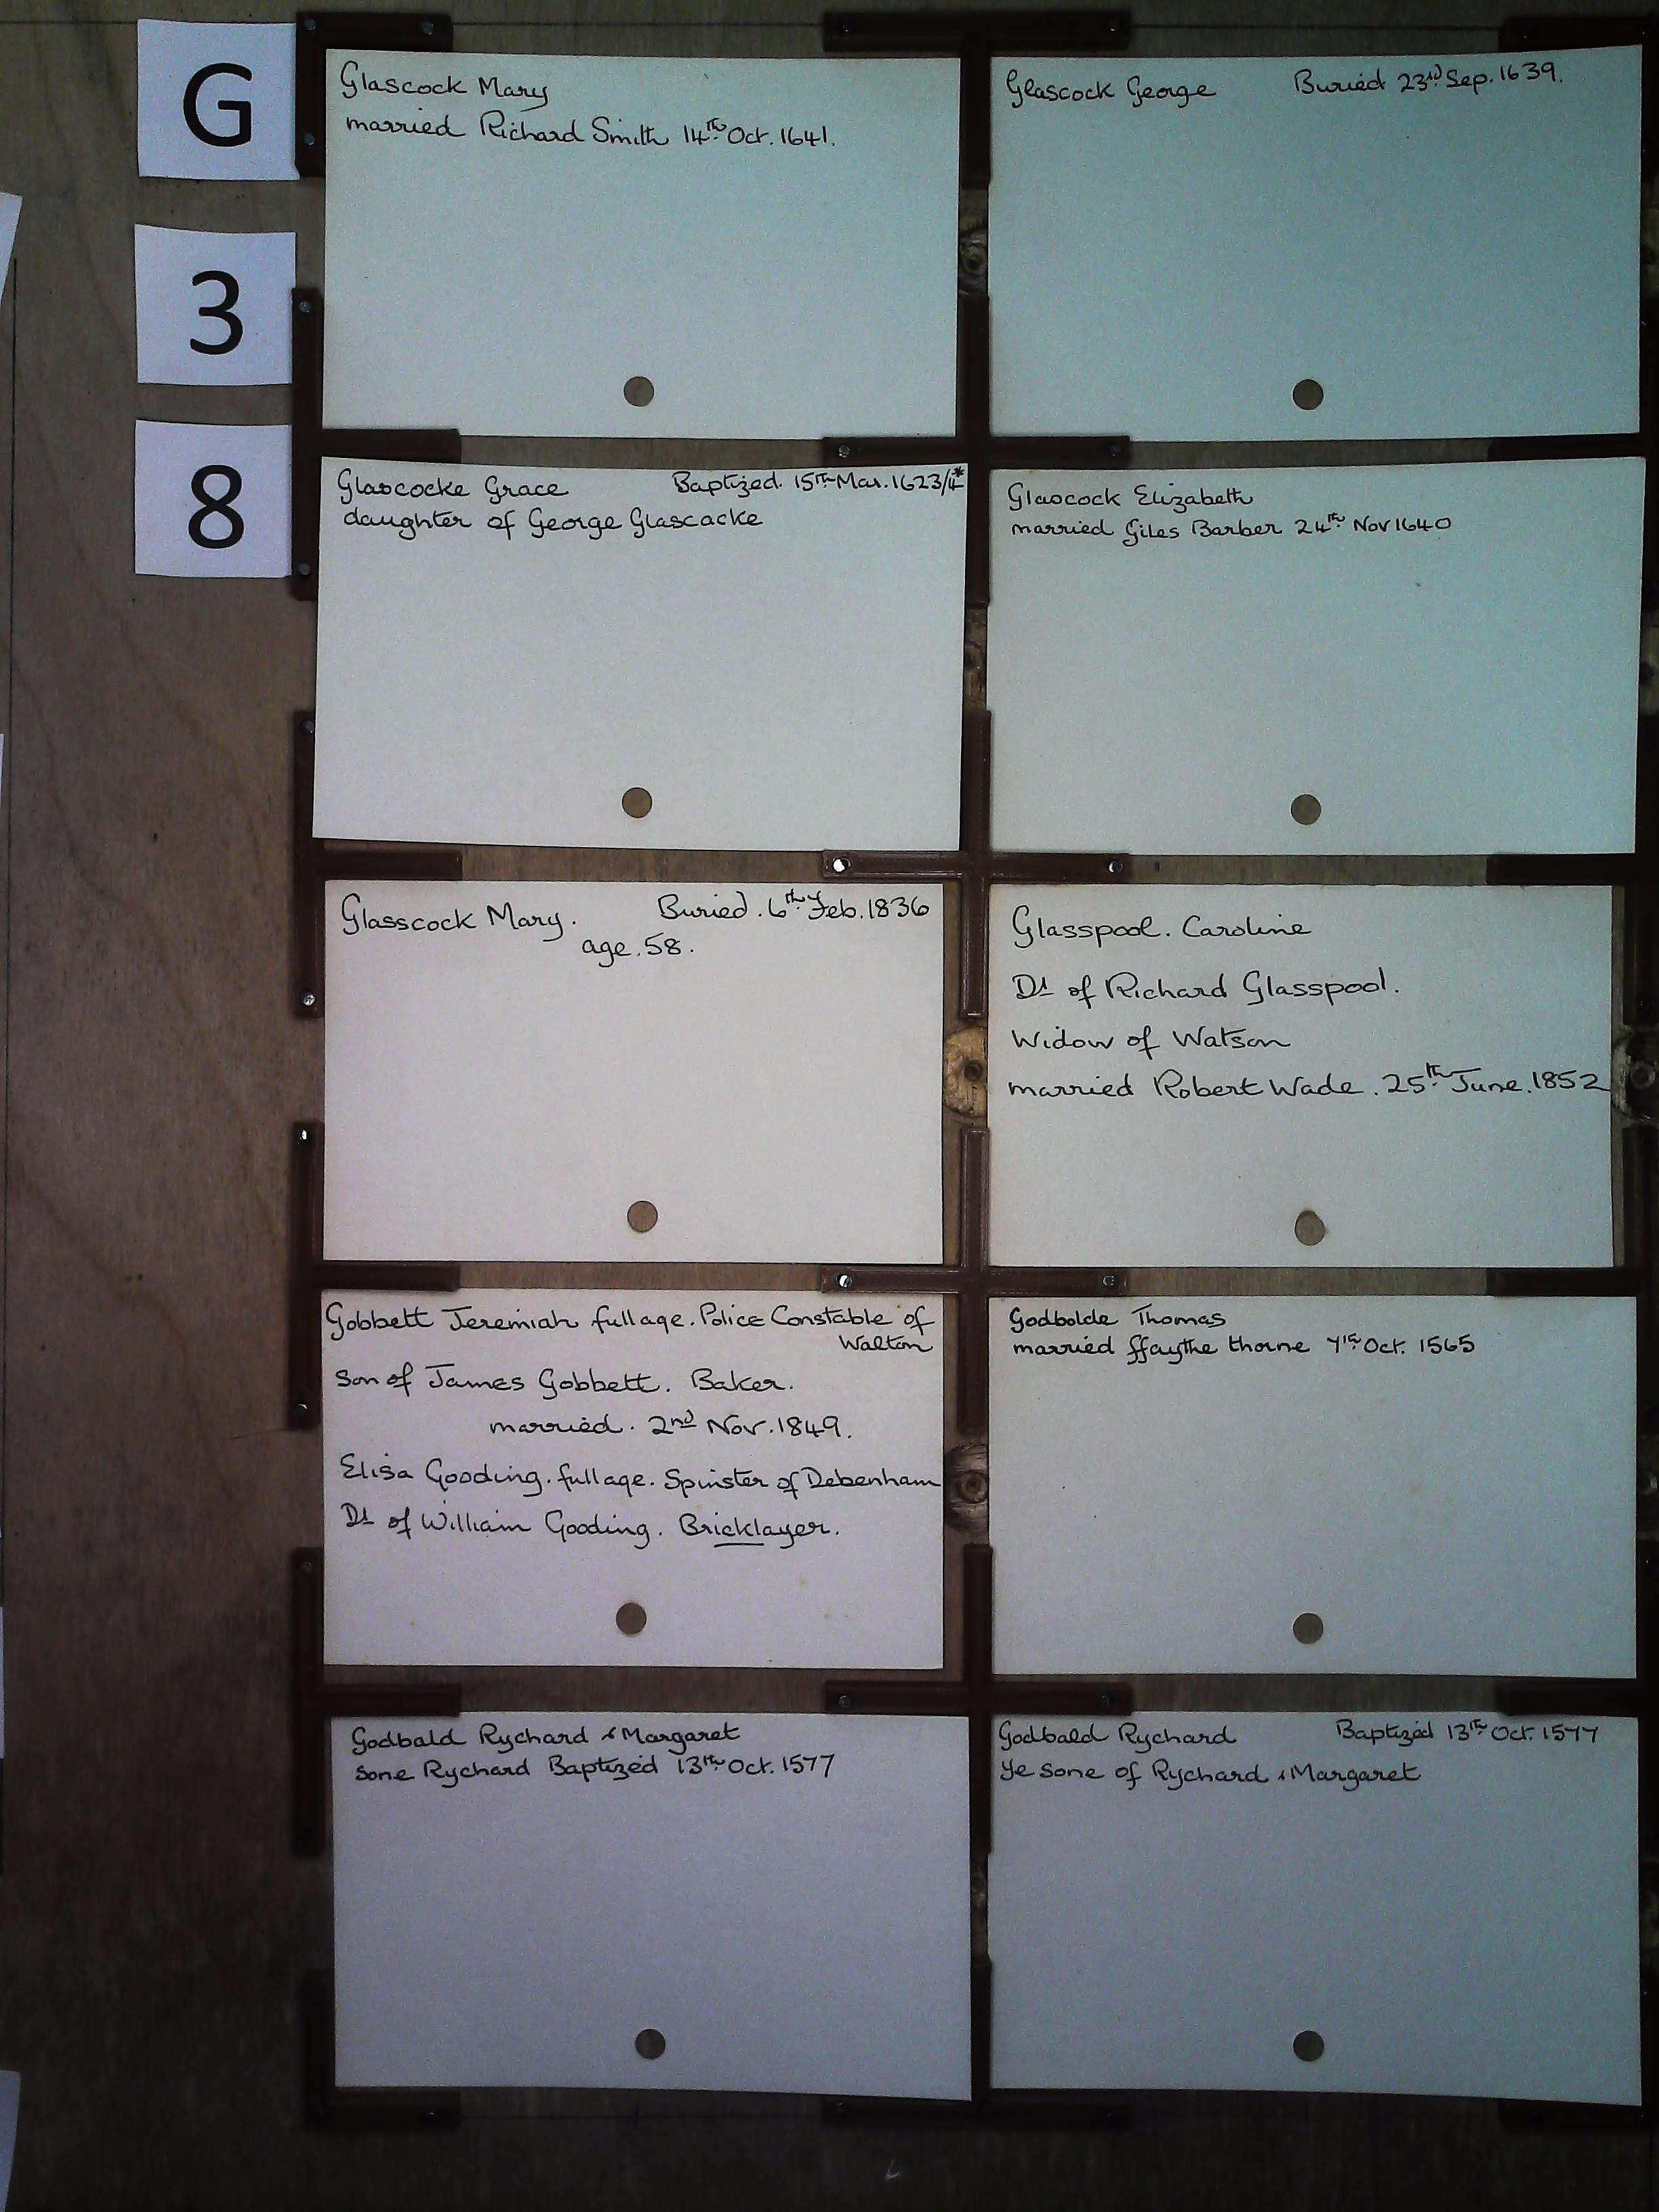 G
3
8
Glascock Mary
married Richard Smith 14th Oct. 1641.
Glascock George Buried 23rd Sep. 1639.
Glascocke Grace Baptized. 15th Mar. 1623/4*
daughter of George Glascacke
Glascock Elizabeth
married Giles Barber 24th Nov 1640
Glasscock Mary. Buried. 6th Feb. 1836
age. 58.
Glasspool. Caroline
Dt of Richard Glasspool.
Widow of Watson
married Robert Wade. 25th June. 1852
Gobbett Jeremiah full age. Police Constable of
Walton
Son of James Gobbett. Baker.
married. 2nd Nov. 1849.
Elisa Gooding. full age. Spinster of Debenham
Dt of William Gooding. Bricklayer.
Godbolde Thomas
married ffaythe thorne Oct. 1565
Godbald Rychard & Margaret
Sone Rychard Baptized 13th Oct. 1577
Godbald Rychard Baptized 13th Oct. 1577
Ye sone of Rychard & Margaret